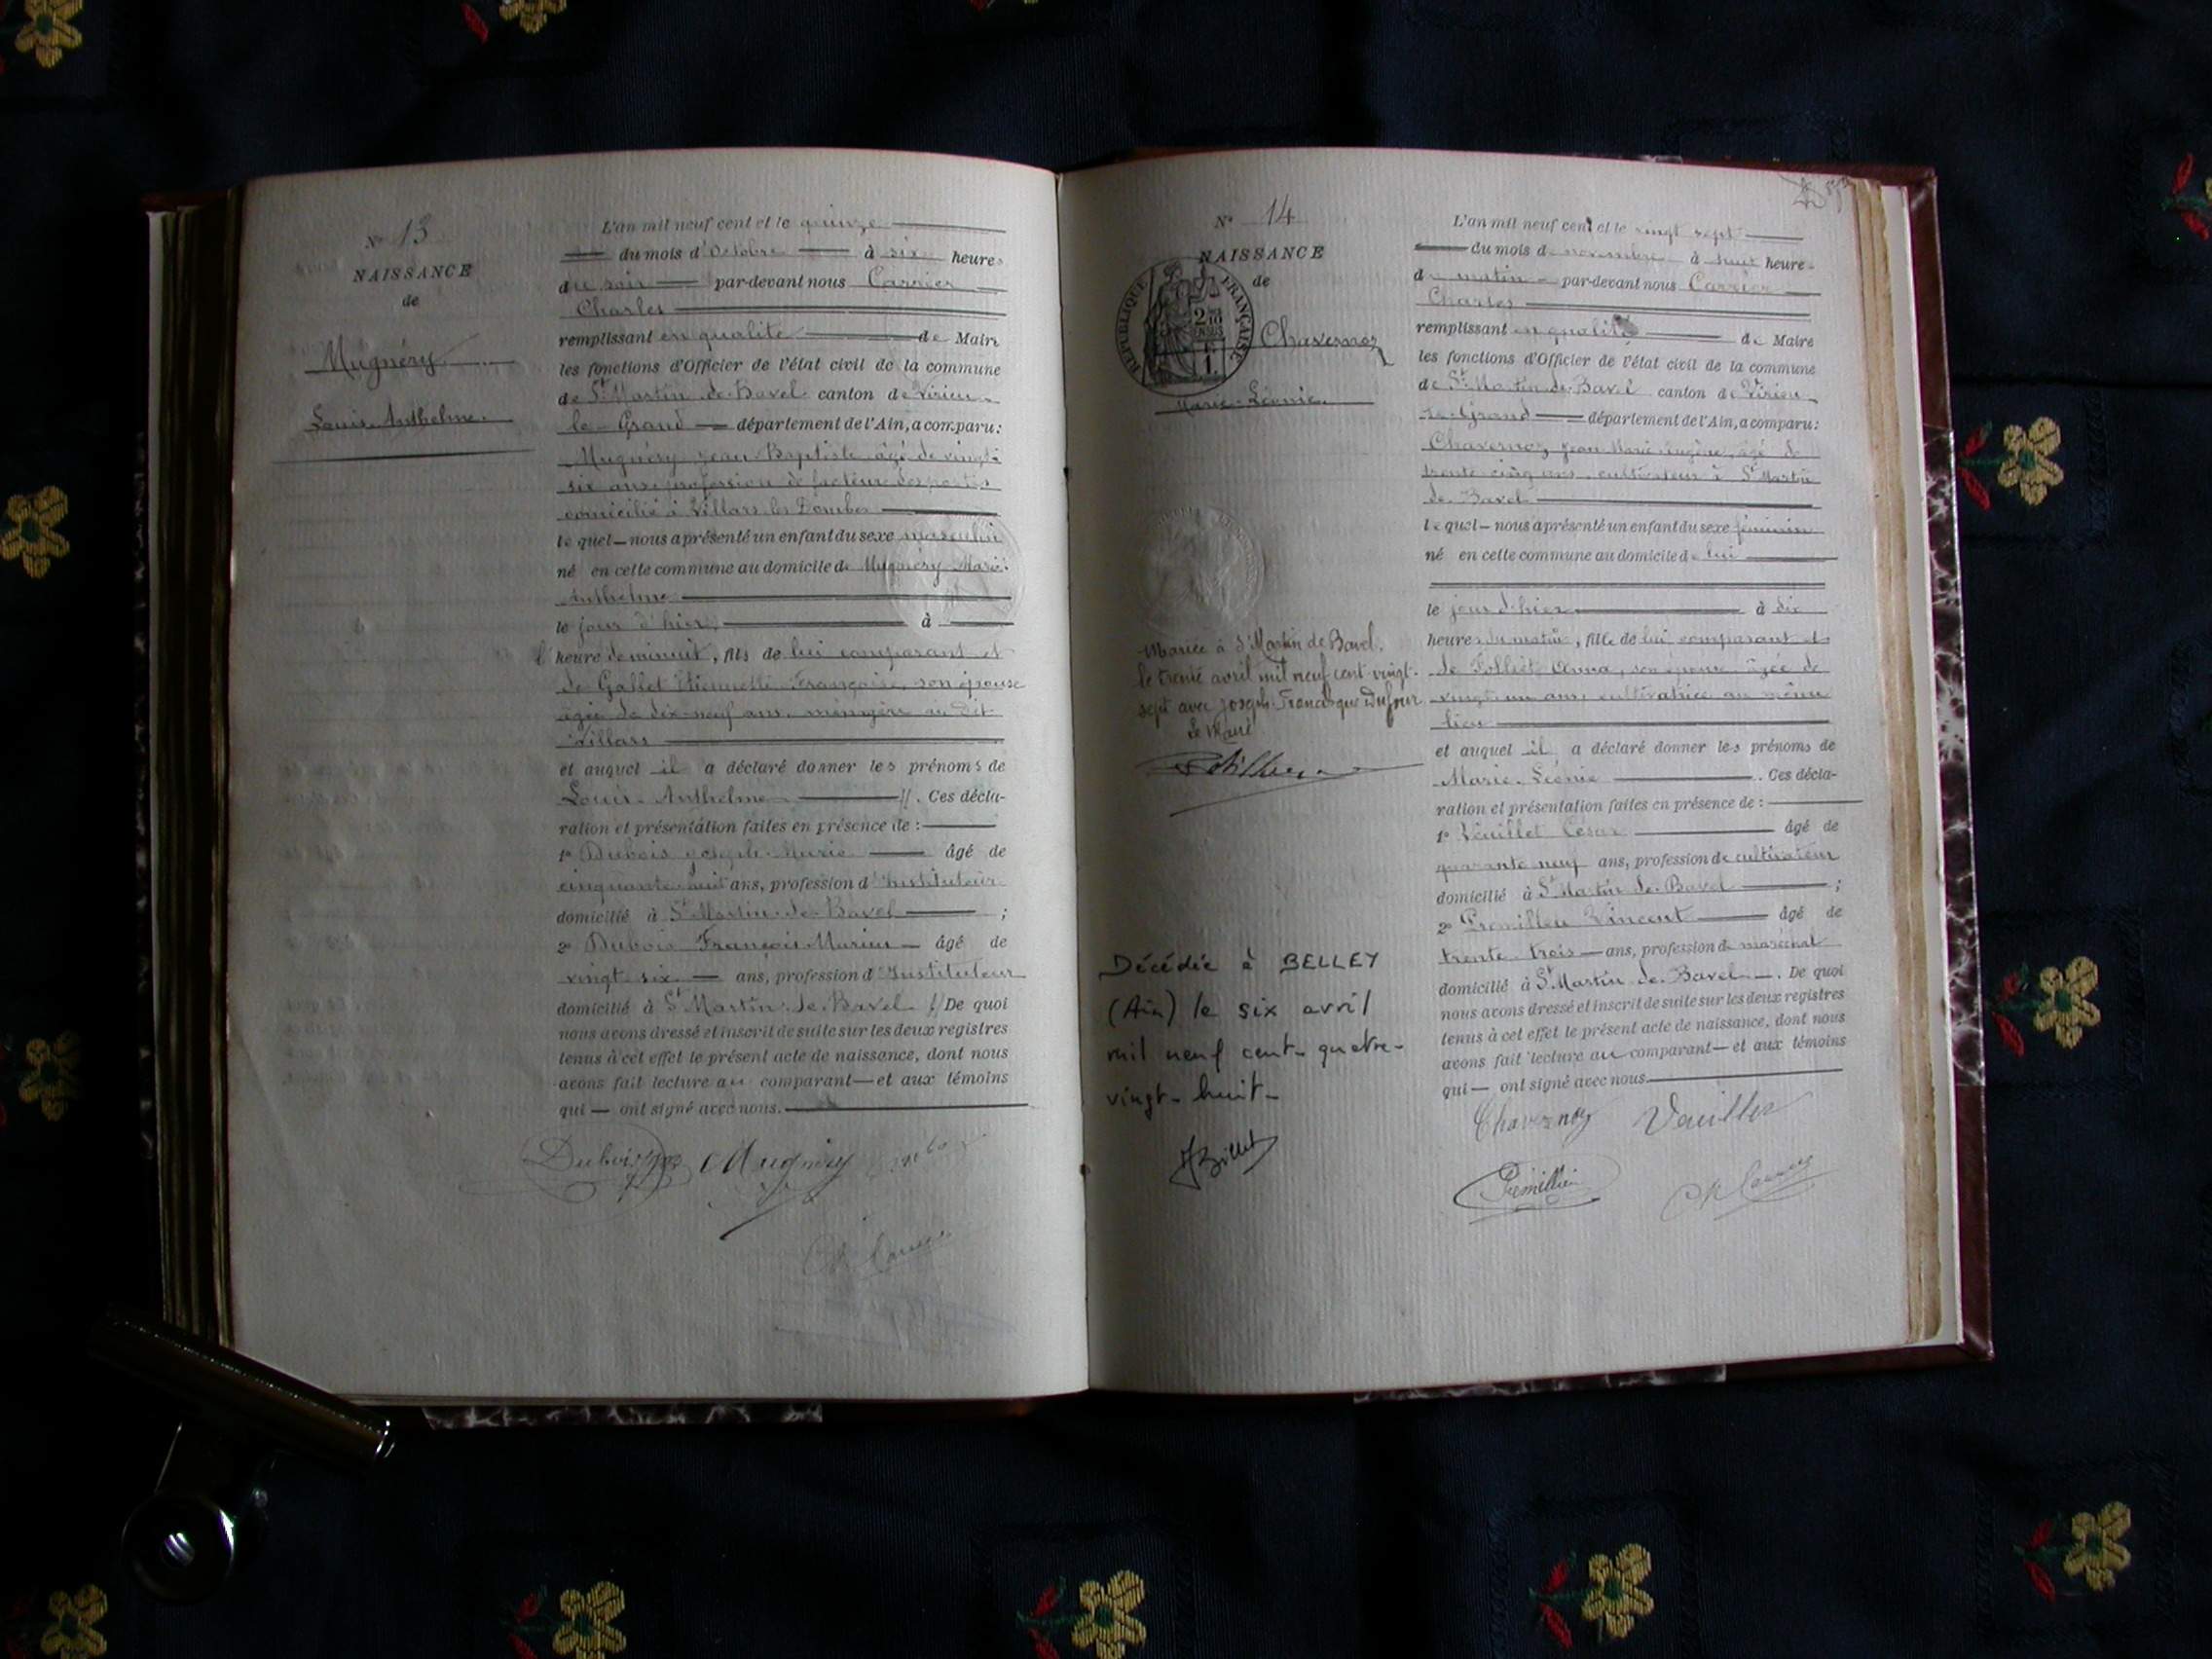 N° 13
NAISSANCE
de
Mugnéry
Louis-Anthelme.
L'an mil neuf cent et le quinze
du mois d'Octobre à six heures
du soir par-devant nous Carrier
Charles
remplissant en qualité de Maire
les fonctions d'Officier de l'état civil de la commune
de St Martin-de-Bavel canton de Virieu-
le-Grand département de l'Ain, a comparu:
Mugnéry Jean-Baptiste âgé de vingt-
six ans profession de facteur des postes
domicilié à Villars les Dombes
lequel nous a présenté un enfant du sexe masculin
né en cette commune au domicile de Mugnéry Marie-
Anthelme
le jour d'hier, à
l'heure de minuit, fils de lui comparant et
de Gallet Etiennette Françoise, son épouse
âgée de dix-neuf ans, ménagère au dit
Villars
et auquel il a déclaré donner les prénoms de
Louis-Anthelme. Ces décla-
ration et présentation faites en présence de :
1° Dubois Joseph-Marie âgé de
cinquante-huit ans, profession d'Instituteur
domicilié à St Martin-de-Bavel ;
2° Dubois François-Marius âgé de
vingt-six ans, profession d'Instituteur
domicilié à St Martin-de-Bavel. De quoi
nous avons dressé et inscrit de suite sur les deux registres
tenus à cet effet le présent acte de naissance, dont nous
avons fait lecture au comparant et aux témoins
qui ont signé avec nous.
Dubois Mugnéry
Ch Carrier
N° 14
NAISSANCE
de
RÉPUBLIQUE FRANÇAISE
Chavernoz
Marie-Léonie.
Mariée à St Martin de Bavel.
le trente avril mil neuf cent vingt-
sept avec Joseph-Francisque Dufour
Le Maire
Décédée à BELLEY
(Ain) le six avril
mil neuf cent-quatre-
vingt-huit-
JBillet
L'an mil neuf cent et le vingt sept
du mois de novembre à huit heures
du matin par-devant nous Carrier
Charles
remplissant en qualité de Maire
les fonctions d'Officier de l'état civil de la commune
de St Martin-de-Bavel canton de Virieu-
le-Grand département de l'Ain, a comparu:
Chavernoz Jean Marie Eugène, âgé de
trente-cinq ans, cultivateur à St Martin
de Bavel
lequel nous a présenté un enfant du sexe féminin
né en cette commune au domicile de lui
le jour d'hier à dix
heures du matin, fille de lui comparant et
de Folliet Anna, son épouse âgée de
vingt un ans, cultivatrice au même
lieu
et auquel il a déclaré donner les prénoms de
Marie-Léonie. Ces décla-
ration et présentation faites en présence de :
1° Veuillet César âgé de
quarante neuf ans, profession de cultivateur
domicilié à St Martin-de-Bavel ;
2° Premillieu Vincent âgé de
trente trois ans, profession de maréchal
domicilié à St Martin-de-Bavel. De quoi
nous avons dressé et inscrit de suite sur les deux registres
tenus à cet effet le présent acte de naissance, dont nous
avons fait lecture au comparant et aux témoins
qui ont signé avec nous.
Chavernoz Veuillet
Premillieu Ch Carrier